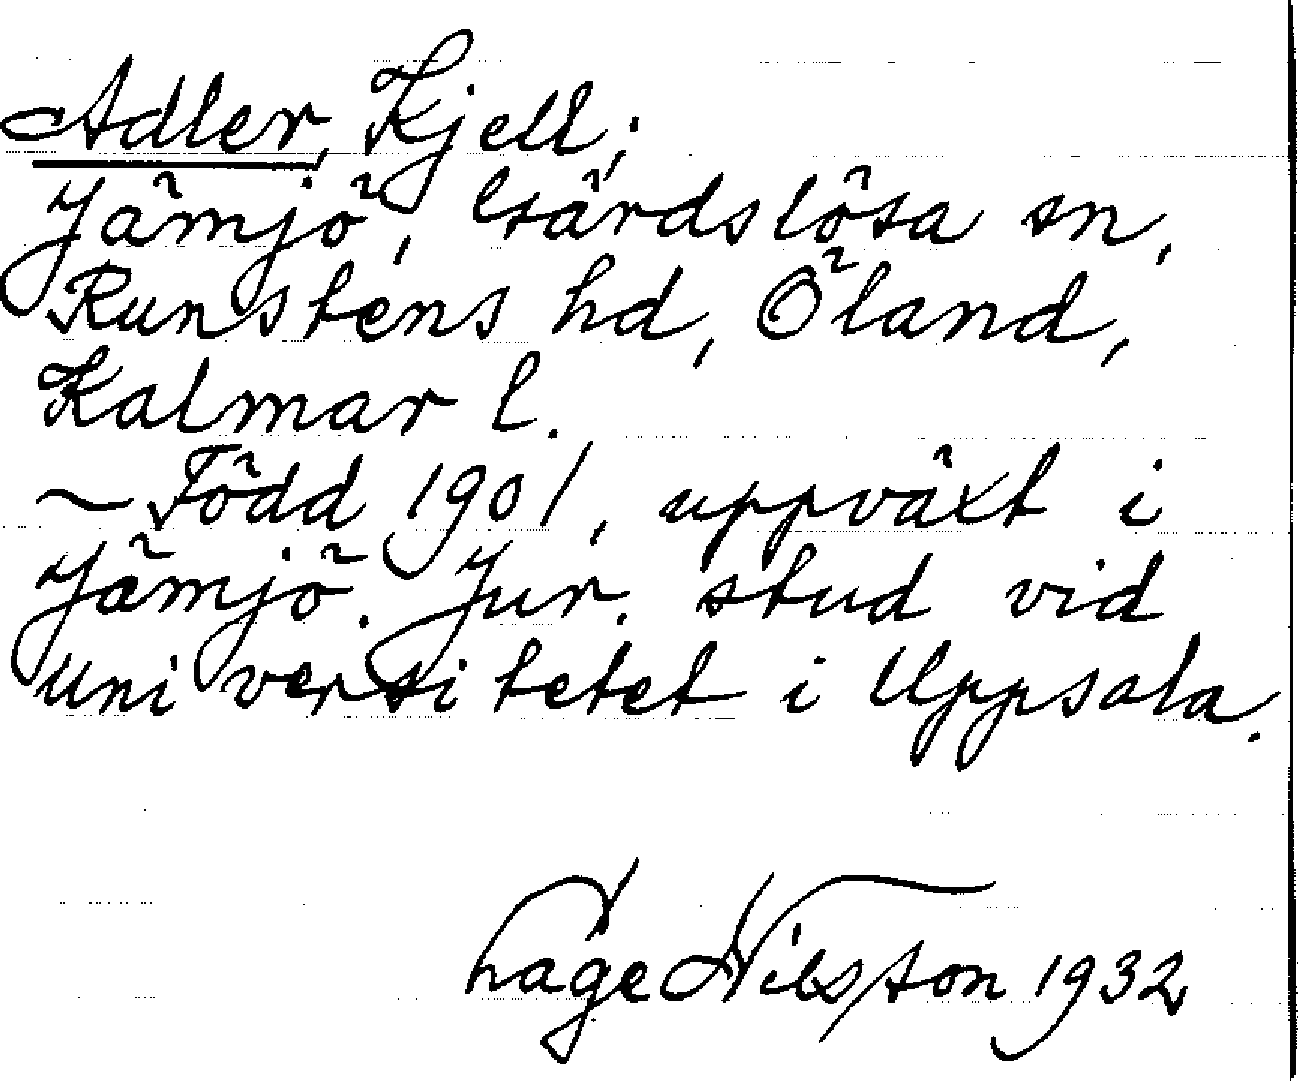 Adler, Kjell;
Jämjö, Gärdslösa sn,
Runstens hd, Öland,
Kalmar l.
— Född 1901, uppväxt i
Jämjö. Jur. stud vid
universitetet i Uppsala.
Lage Nilsson 1932